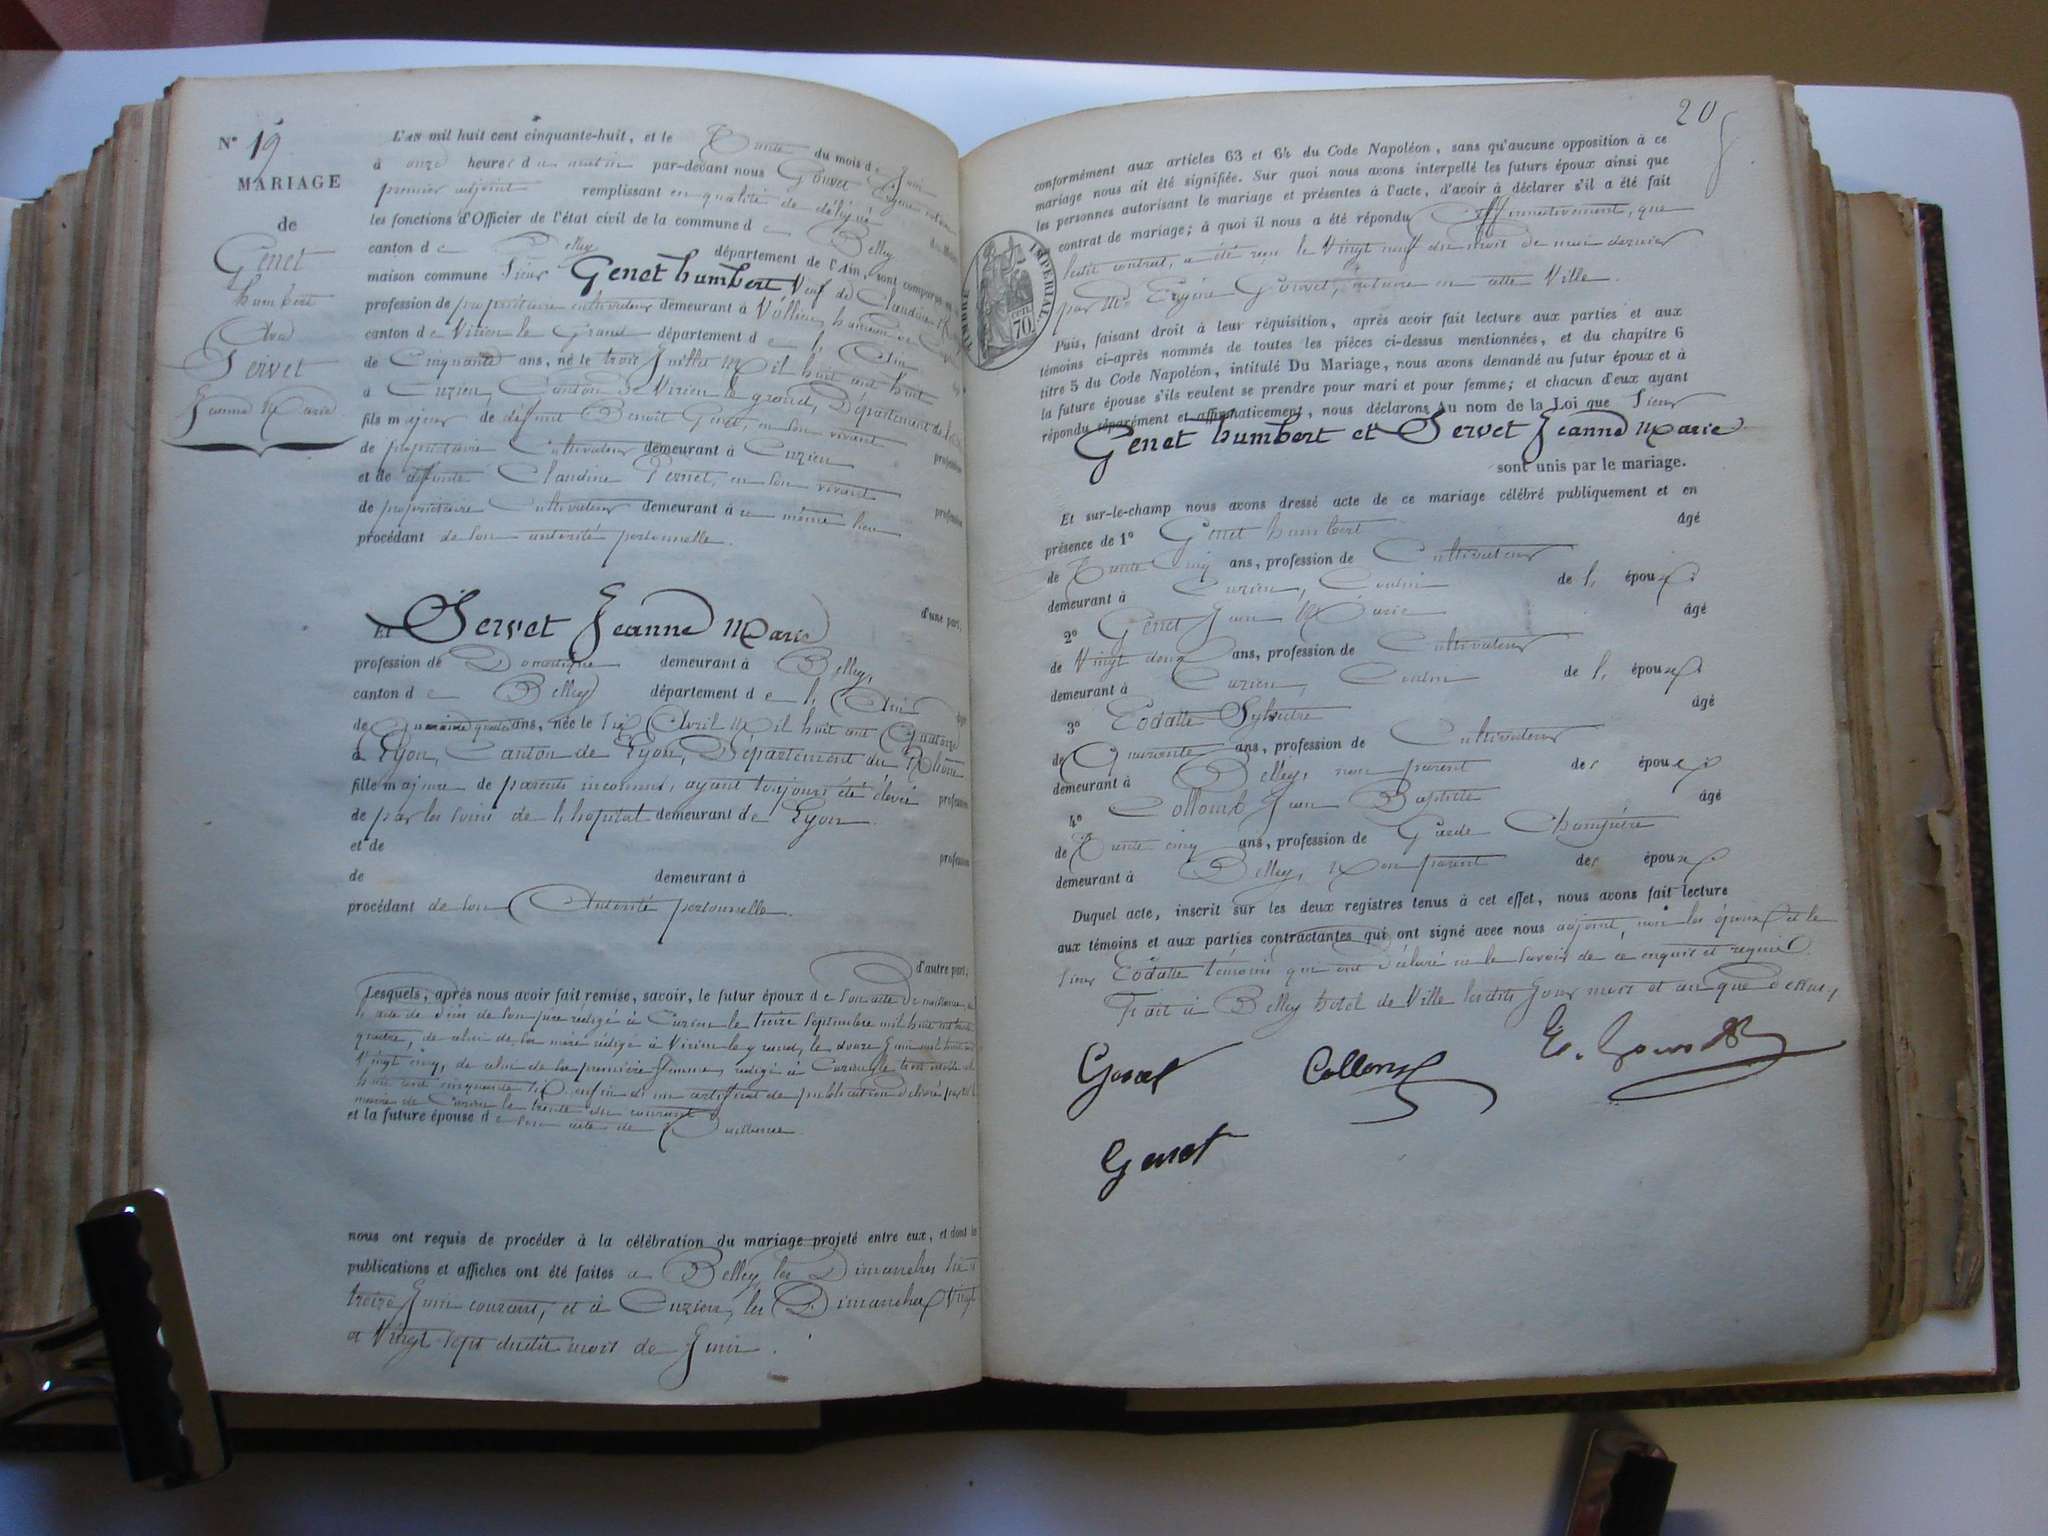 N° 19
MARIAGE
de
Genet
humbert
Avec
Servet
Jeanne Marie
L'AN mil huit cent cinquante-huit, et le Trente du mois de Juin
à onze heures du matin par-devant nous Gouvet Eugène
premier adjoint remplissant en qualité de délégué
les fonctions d'Officier de l'état civil de la commune de Belley
canton de Belley département de l'Ain, sont comparus en
maison commune Sieur Genet humbert Veuf de Claudine
profession de propriétaire cultivateur demeurant à Vollien, hameau de
canton de Virieu le Grand département de l'Ain
de Cinquante ans, né le trois Juillet Mil huit cent huit
à Cuzieu, Canton de Virieu le grand, Département de l'Ain
fils majeur de défunt Benoit Genet, en son vivant profession
de propriétaire Cultivateur demeurant à Cuzieu
et de défunte Claudine Pernet, en son vivant profession
de propriétaire Cultivateur demeurant à ce même lieu
procédant de son autorité personnelle.
d'une part,
Et Servet Jeanne Marie
profession de Domestique demeurant à Belley,
canton de Belley département de l'Ain âgée
de Quarante quatre ans, née le Six Avril Mil huit cent Quatorze
à Lyon, Canton de Lyon, Département du Rhône
fille majeure de parents inconnus, ayant toujours été élevée profession
de par les soins de l'hopital demeurant de Lyon.
et de profession
de demeurant à
procédant de son Autorité personnelle.
d'autre part,
Lesquels, après nous avoir fait remise, savoir, le futur époux de son acte de naissance, de
l'acte de décès de son père rédigé à Cuzieu le treize Septembre mil huit cent trente
quatre, de celui de sa mère rédigé à Virieu le grand, le douze Juin mil huit cent
Vingt cinq, de celui de sa première femme, rédigé à Cuzieu le
huit cent cinquante six enfin d'un certificat de publication délivré par le
maire de Cuzieu le trente du courant
et la future épouse de son acte de Naissance
nous ont requis de procéder à la célébration du mariage projeté entre eux, et dont les
publications et affiches ont été faites à Belley les Dimanches six et
treize Juin courant, et à Cuzieu, les Dimanches Vingt
et Vingt sept dudit mois de Juin.
20
conformément aux articles 63 et 64 du Code Napoléon, sans qu'aucune opposition à ce
mariage nous ait été signifiée. Sur quoi nous avons interpellé les futurs époux ainsi que
les personnes autorisant le mariage et présentes à l'acte, d'avoir à déclarer s'il a été fait
contrat de mariage; à quoi il nous a été répondu Affirmativement, que
ledit contrat, a été reçu le Vingt neuf du mois de mai dernier
par Me Eugène Gouvet, notaire en cette Ville.
TIMBRE IMPERIAL
70 CEN.
Puis, faisant droit à leur réquisition, après avoir fait lecture aux parties et aux
témoins ci-après nommés de toutes les pièces ci-dessus mentionnées, et du chapitre 6
titre 5 du Code Napoléon, intitulé Du Mariage, nous avons demandé au futur époux et à
la future épouse s'ils veulent se prendre pour mari et pour femme; et chacun d'eux ayant
répondu séparément et affirmativement, nous déclarons Au nom de la Loi que Sieur
Genet humbert et Servet Jeanne Marie
sont unis par le mariage.
Et sur-le-champ nous avons dressé acte de ce mariage célébré publiquement et en
présence de 1° Genet humbert âgé
de Trente Cinq ans, profession de Cultivateur
demeurant à Cuzieu, Cousin de l'époux
2° Genet Jean Marie âgé
de Vingt deux ans, profession de Cultivateur
demeurant à Cuzieu, Cousin de l'époux
3° Eodatte Sylvestre âgé
de Quarante ans, profession de Cultivateur
demeurant à Belley, non parent des époux
4° Collomb Jean Baptiste âgé
de Trente cinq ans, profession de Garde Champêtre
demeurant à Belley, Non parent des époux
Duquel acte, inscrit sur les deux registres tenus à cet effet, nous avons fait lecture
aux témoins et aux parties contractantes qui ont signé avec nous adjoint, non les époux et le
sieur Eodatte témoin qui ont déclaré ne le savoir de ce enquis et requis.
Fait à Belley hotel de Ville lesdits Jour mois et an que dessus,
Genet Collomb E. Gouvet
Genet